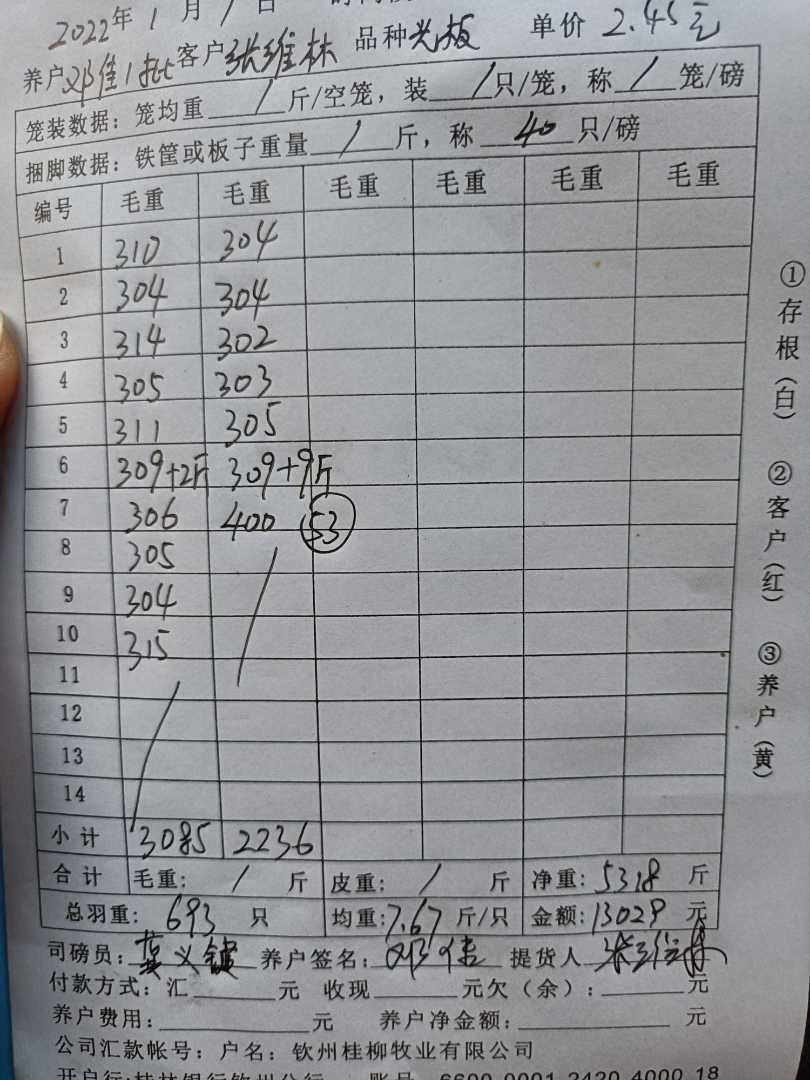 2022年1月1日
养户邓佳1批 客户张维林 品种光板 单价2.45元
笼装数据：笼均重 / 斤/空笼，装 / 只/笼，称 / 笼/磅
捆脚数据：铁筐或板子重量 / 斤，称 40 只/磅
编号 毛重 毛重 毛重 毛重 毛重 毛重
1 310 304
2 304 304
3 314 302
4 305 303
5 311 305
6 309+2斤 309+9斤
7 306 400 53
8 305
9 304
10 315
11
12
13
14
小计 3085 2236
合计 毛重： / 斤 皮重： / 斤 净重：5318 斤
总羽重：693 只 均重：7.67 斤/只 金额：13029 元
司磅员： 养户签名：邓佳 提货人 张维林
付款方式：汇 元 收现 元欠（余）： 元
养户费用： 元 养户净金额： 元
公司汇款帐号：户名：钦州桂柳牧业有限公司
开户行：桂林银行钦州分行 账号 6600 0001 2420 4000 18
①存根（白） ②客户（红） ③养户（黄）